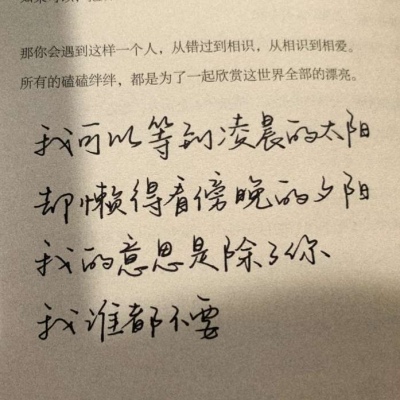 那你会遇到这样一个人，从错过到相识，从相识到相爱。
所有的磕磕绊绊，都是为了一起欣赏这世界全部的漂亮。
我可以等到凌晨的太阳
却懒得看傍晚的夕阳
我的意思是除了你、
我谁都不要